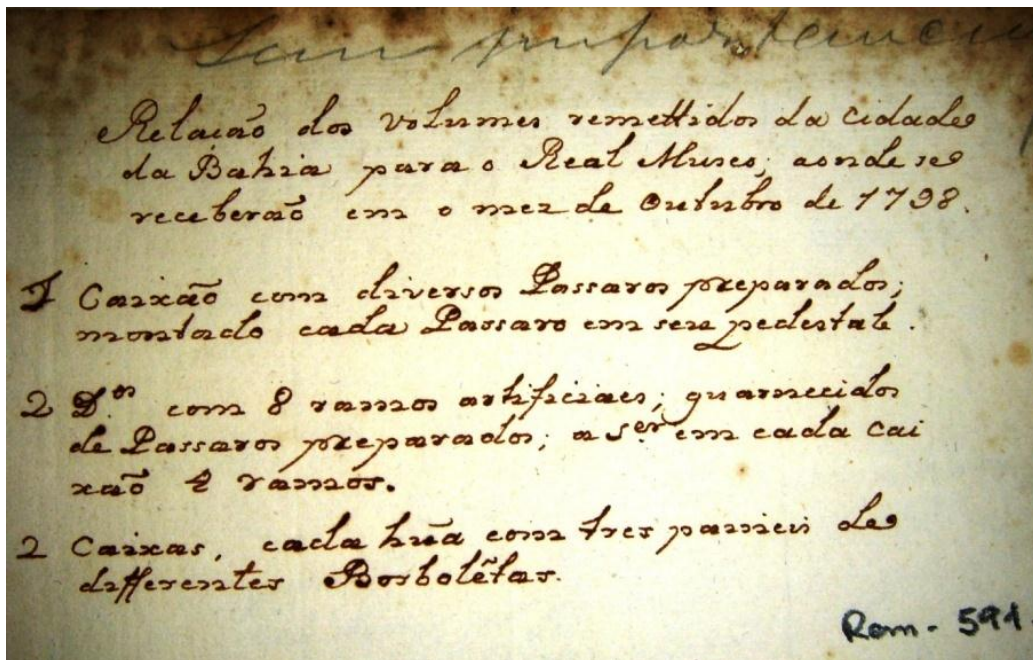 Sem importancia
Relação dos volumes remettidos da Cidade
da Bahia para o Real Museo, aonde se
receberaõ em o mez de Outubro de 1798.
1 Caixaõ com diversos Passaros preparados;
montado cada Passaro em seu pedestal.
2 D.os com 8 ramos artificiaes; guarnecidos
de Passaros preparados; a s.er em cada cai
xaõ 4 ramos.
2 Caixas, cada hũa com tres paineis de
differentes Borbolẽtas.
Rem - 591.